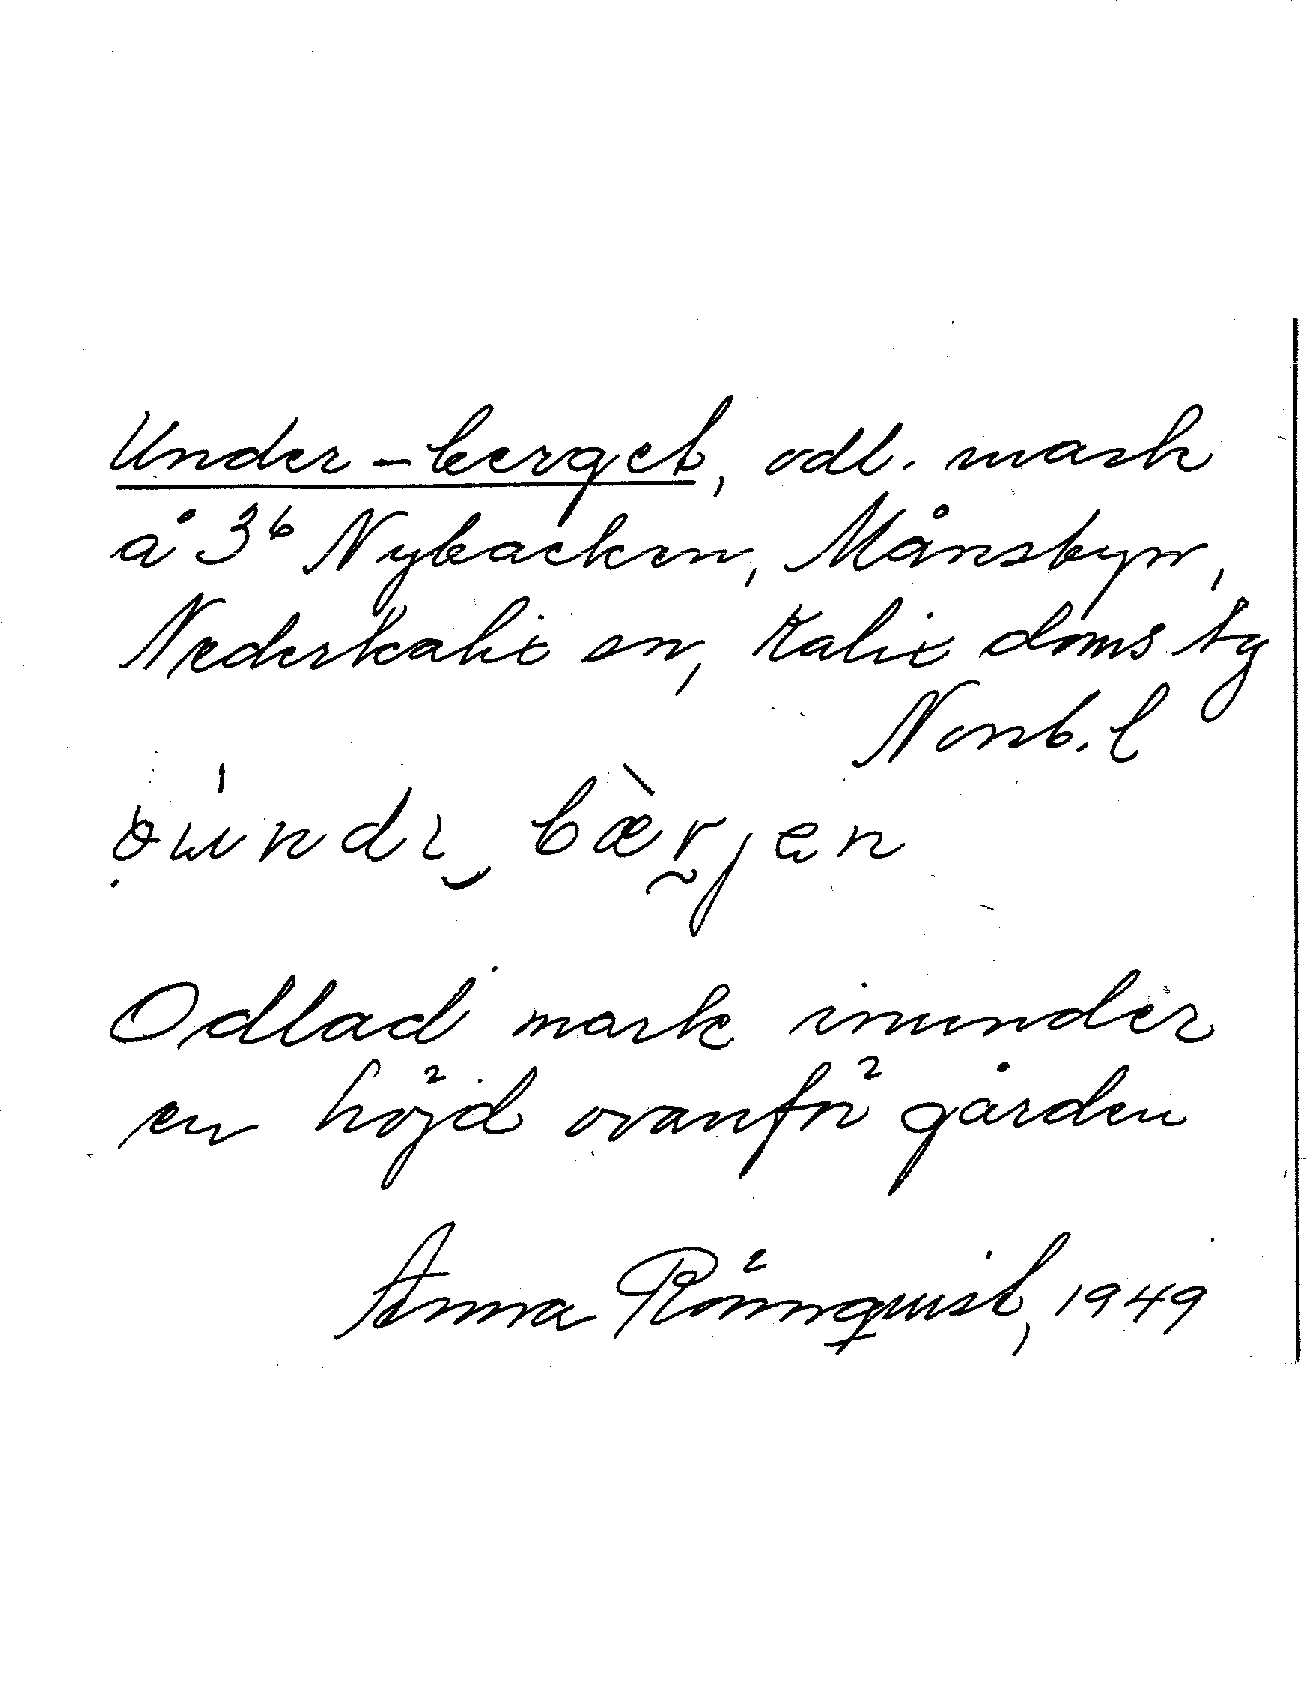 Under-berget, odl. mark
å 3⁶ Nybacken, Månsbyn,
Nederkalix sn, Kalix doms tg
Norrb. l
bærjen
Odlad mark inunder
en höjd ovanför gården
Anna Rönnquist, 1949